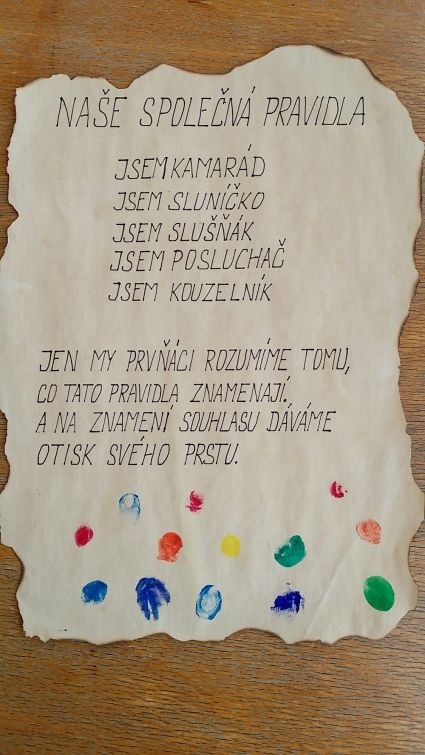 NAŠE SPOLEČNÁ PRAVIDLA
JSEM KAMARÁD
JSEM SLUNÍČKO
JSEM SLUŠŇÁK
JSEM POSLUCHAČ
JSEM KOUZELNÍK
JEN MY PRVŇÁCI ROZUMÍME TOMU,
CO TATO PRAVIDLA ZNAMENAJÍ.
A NA ZNAMENÍ SOUHLASU DÁVÁME
OTISK SVÉHO PRSTU.